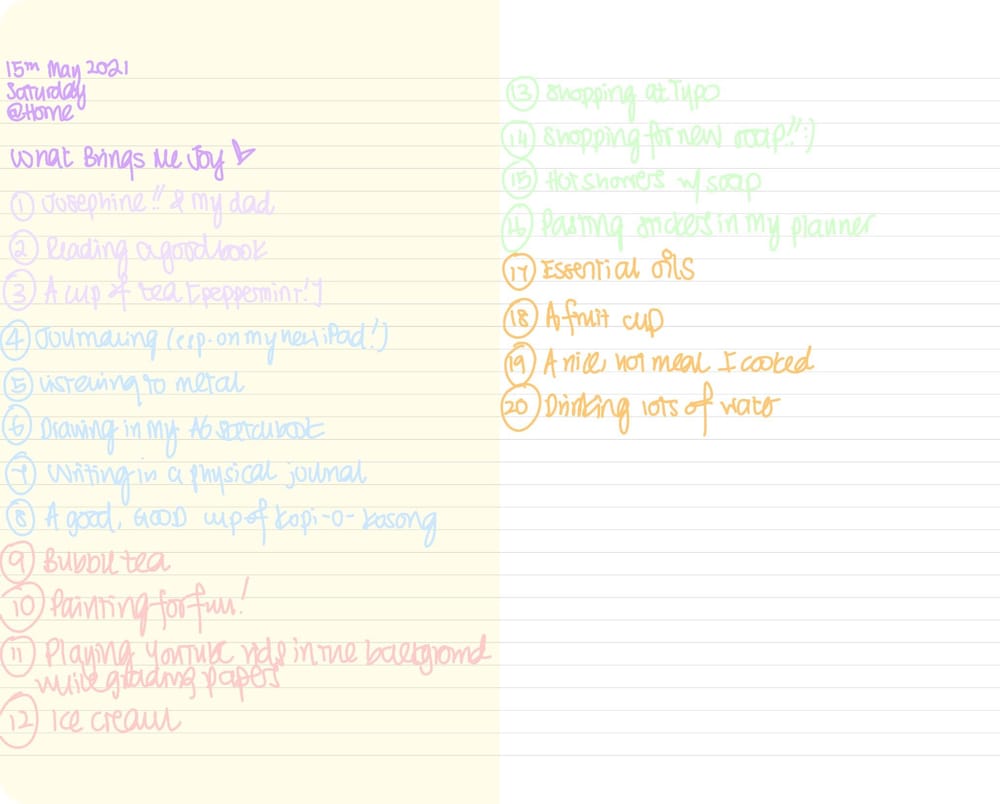 15th May 2021
Saturday
@Home
What Brings Me Joy
① Josephine!! & my dad
② Reading a good book
③ A cup of tea [peppermint!]
④ Journaling (esp. on my new iPad!)
⑤ Listening to metal
⑥ Drawing in my A6 sketchbook
⑦ Writing in a physical journal
⑧ A good, GOOD cup of kopi-o-kosong
⑨ Bubble tea
⑩ Painting for fun!
⑪ Playing YouTube vids in the background
while grading papers
⑫ Ice cream
⑬ Shopping at Typo
⑭ Shopping for new soap!! :)
⑮ Hot showers w/ soap
⑯ Pasting stickers in my planner
⑰ Essential oils
⑱ A fruit cup
⑲ A nice, hot meal I cooked
⑳ Drinking lots of water